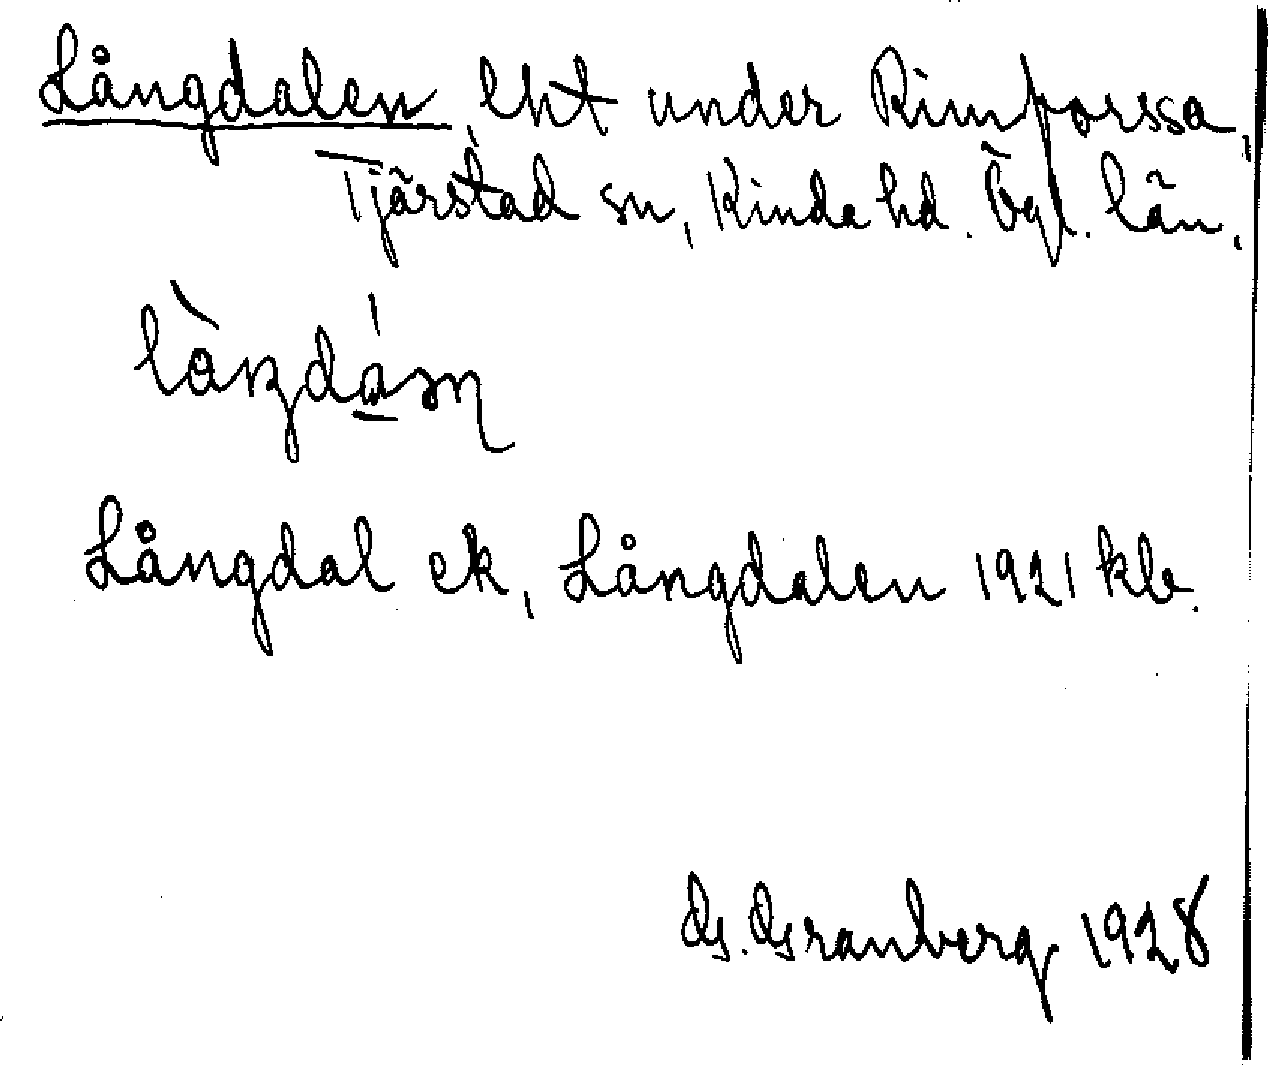 Långdalen, lht under Rimforssa,
Tjärstad sn, Kinda hd. Ögl. län.
Långdal ek, Långdalen 1921 kle.
G. Granberg 1928